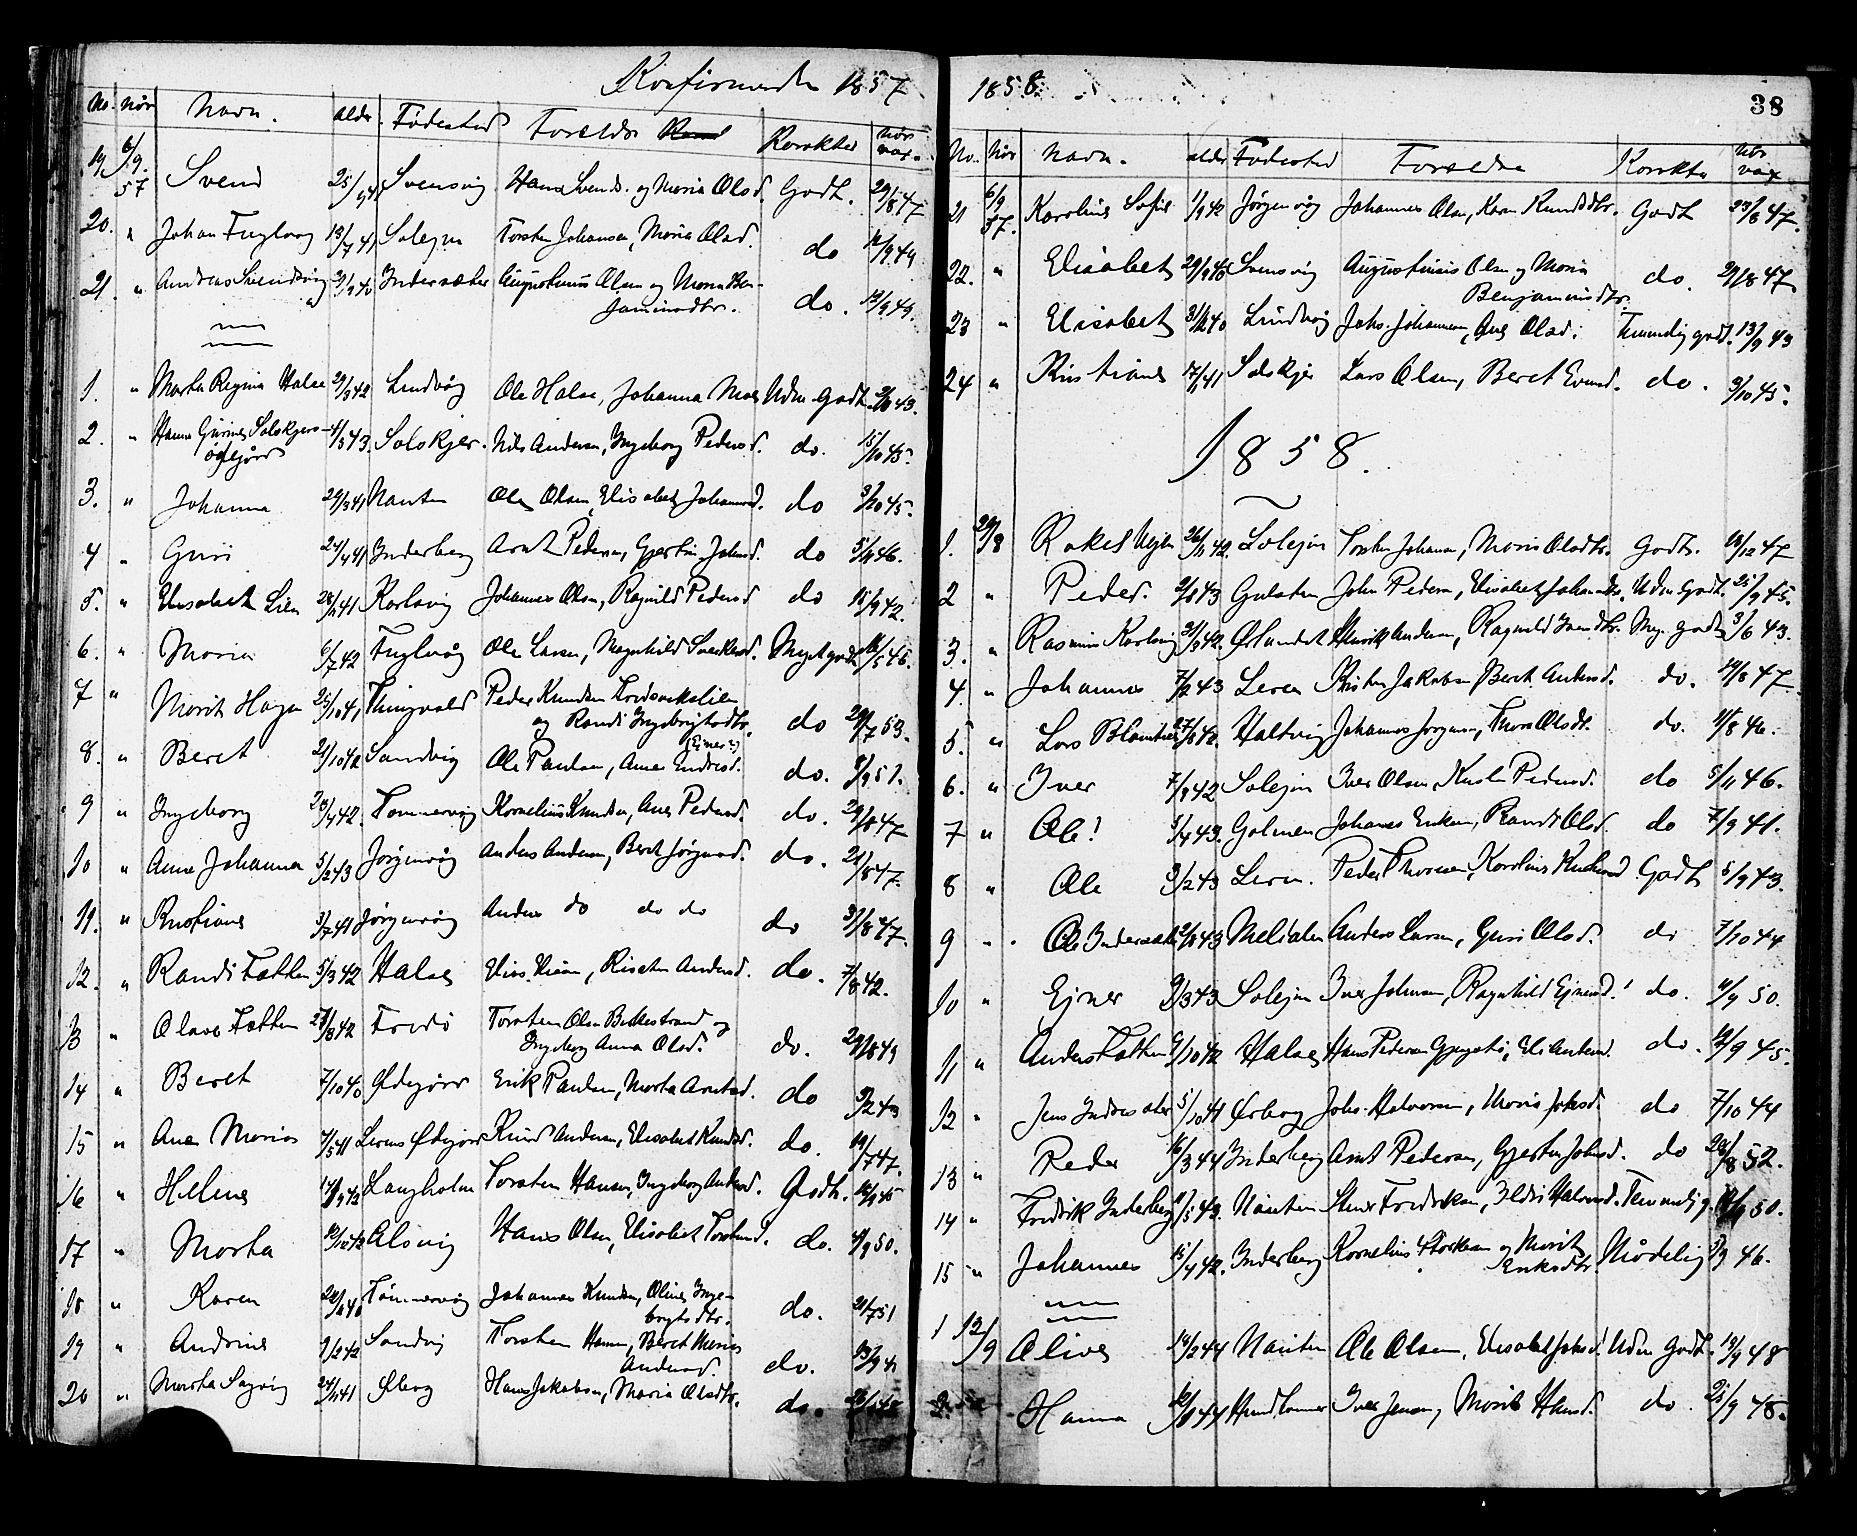 Konfirmerede 1857
No. Når Navn. Alder Fødested Foreldre Karakter Når vax.
19 6/9 57 Svend 25/ 41 Svensvig Hans Svends. og Maria Olsd. Godt. 29/8 47
20. " Johan Fuglvog 18/7 41 Solejen Torsten Johansen, Maria Olsd. do 12/9 44
21. " Andreas Svendsvig 3/9 40 Indersæter Augustinius Olsen og Maria Ben-
jaminsdtr. do. 12/9 49.
1. " Marta Regina Halse 29/3 42 Lundvåg Ole Halse, Johanna Udm. Godt. 43.
2. " Hanna Gurine Solskjers-
ødegjård 4/5 43. Solskjer. Nils Andersen, Ingeborg Pedersd. do. 15/10 45.
3. " Johanna 29/3 41 Nauten Ole Olsen, Elisabet Johannesd. do 3/10 45.
4 " Guri 24/4 41 Inderberg Arnt Pedersen, Gjertine Johnsd. do 5/11 46.
5. " Elisabet Lien 28/ 41 Korsvig Johannes Olsen, Ragnild Pedersd do 15/9 42.
6. " Maria 6/7 42 Fuglvåg Ole Larsen, Magnhild Sivertsd. Myet godt /5 46.
7 " Marit Hagen 25/10 41 Thingvold Peder Knudsen Fredsvikslien
og Randi Ingebrigtsdtr. do 29/7 53.
8. " Beret 21/10 42 Sandvig Ole Paulsen, Ane Endresd. (Ejner?) do. /9 51.
9 " Ingeborg 23/4 42. Tømmervåg Kornelius Knudsen, Ane Pedersd. do. 29/8 47
10 " Anne Johanna 5/2 43 Jørgenvåg Anders Andersen, Beret Jørgensd. do. 21/8 47.
11. " Kristiane 3/7 41 Jørgenvåg Anders do do do do 3/8 47.
12. " Randi Fætten 5/3 42 Halse do. 7/8 42.
13 " Olave Fætten 27/8 42 Fredø Torsten Olsen Bekkestrand og
Ingeborg Anna Olsd. do. 29/8 49
14 " Beret 7/10 40 Ødegård Erik Paulsen, Marta Arntsd. do 9/2 43
15 " Ane Maria 4/5 41 Lerens Ødegård Knud Andersen, Elisabet Knudsd. do. 19/7 47.
16 " Helene 42 Langholm Torsten Hansen, Ingeborg Andersd. Godt. 45
17 " Marta /10 42 Elsvig Hans Olsen, Elisabet Torstensd. do. /9 50.
18 " Karen 40 Tømmervåg Johannes Knudsen, Oline Inge-
brigtsdtr. do. 21/7 51
19 " Andrine 9/2 42 Sandvig Torsten Hansen, Beret Maria
Andersd. do. 13/9 41
20 " Marta Sagvig 24/ 41 Øberg Hans Jakobsen, Maria Olsdtr. do.
1858. 38
No. Når Navn. Alder Fødested Foreldre Karakter Når vax
21 6/9 57. Karoline Sofie 1/9 42 Jørgenvåg Johannes Olsen, Karen Knudsdtr. Godt 23/8 47.
22. " Elisabet 29/ 40 Svensvig Augustinius Olsen og Maria
Benjaminsdtr. do. 29/8 47.
23 " Elisabet 31/ 40 Lundvåg Johs. Johannesen, Ane Olsd. Temmelig godt. 13/9 43
24 " Kristiane 17/ 41 Solskjer Lars Olsen, Beret Evensd. do. 9/10 45.
1858.
1. 29/8 Rakel 26/11 42. Solejen Torsten Johansen, Maria Olsdtr. Godt. 18/12 47
2 " Peder. 43 Gulsten John Pedersen, Elisabet Johannesd. Udm. Godt. 25/9 45.
3. " Rasmus Korsvig 21/9 42. Ørlandet Henrik Andersen, Ragnild Ivarsdtr. Mg. godt 3/6 43.
4. " Johannes 7/2 43 Leren Kristen Jakobsen Beret Andersd. do. 19/8 47.
5. " Lars 27/ 42. Haltvig Johannes Jørgensen, Thora Olsdt. do. 11/8 46.
6. " Iver 7/9 42 Solejen Iver Olsen, Kirsten Pedersd. do 5/11 46.
7 " Ole! 5/4 43. Golmen Johannes Eriksen, Randi Olsd. do 7/9 41.
8 " Ole 3/2 43 Leren. Peder Thoresen, Karoline Knudsd Godt 5/9 43.
9 " Ole Indersæter 43 Melialen Anders Larsen, Guri Olsd. do 7/10 44
10 " Ejner 9/3 43 Solejen Iver Johnsen, Ragnhild Ejnersd. do. 11/9 50.
11 " Anders Fætten 9/10 42 Halse Hans Pedersen, Eli Andersd. do. 12/9 45.
12 " Jens 5/10 41 Ørberg Johs. Halvorsen, Maria Johsd. do 7/10 44
13 " Peder 16/3 44 Inderberg Arnt Pedersen, Gjertine Johnsd. do 28/8 52.
14 " Fredrik Inderberg /5 43. Nauten Steen Fredriksen, Ildri Halvorsd. Temmelig g. 50.
15 " Johannes 15/4 42. Inderberg Kornelius og Marit
Eriksdtr. Mådelig 3/9 46.
1 12/9 Olive 14/2 44 Nauten Ole Olsen, Elisabet Johsd. Udm. Godt. 19/9 48
2. Hanna 44 Hendhammer Iver Jensen, Marit Hansd. do. 25/9 48.